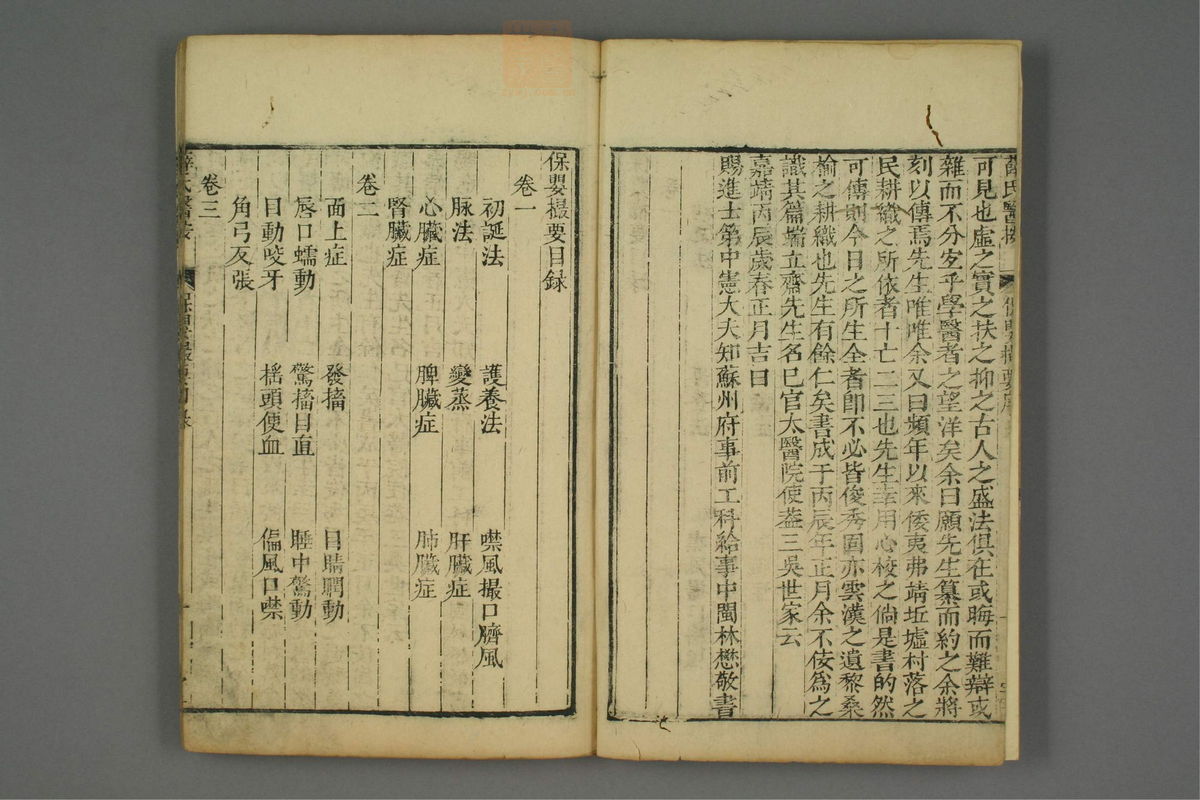 可見也虛之實之扶之抑之古人之盛法俱在或晦而難辯或
雜而不分宐乎學醫者之望洋矣余曰願先生纂而約之余將
刻以傳焉先生唯唯余又曰頻年以來倭夷弗靖坵墟村落之
民耕織之所依者十亡二三也先生幸用心校之倘是書的然
可傳則今日之所生全者卽不必皆俊秀固亦雲漢之遺黎桑
榆之耕織也先生有餘仁矣書成于丙辰年正月余不佞爲之
識其篇端立齋先生名已官太醫院使葢三吳世家云
嘉靖丙辰歲春正月吉日
賜進士第中憲大夫知蘇州府事前工科給事中閩林懋敬書
保嬰撮要目録
卷一
初誕法 護養法 噤風撮口臍風
脉法 變蒸 肝臟症
心臟症 脾臟症 肺臟症
腎臟症
卷二
面上症 發搐 目睛瞤動
唇口蠕動 驚搐目直 睡中驚動
目動咬牙 搖頭便血 偏風口噤
角弓反張
卷三